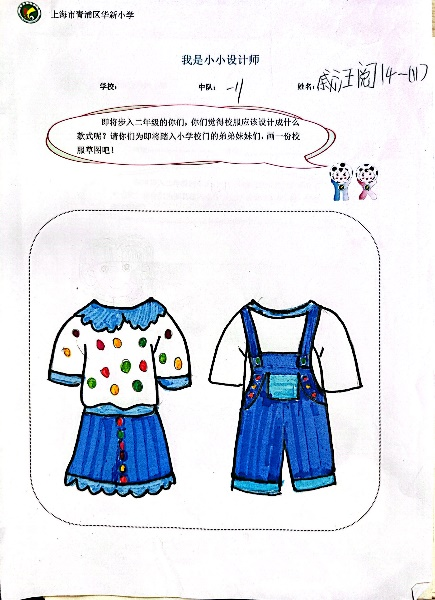 上海市青浦区华新小学
我是小小设计师
学校： 中队： 一11 姓名：
即将步入二年级的你们，你们觉得校服应该设计成什么
款式呢？请你们为即将踏入小学校门的弟弟妹妹们，画一份校
服草图吧！